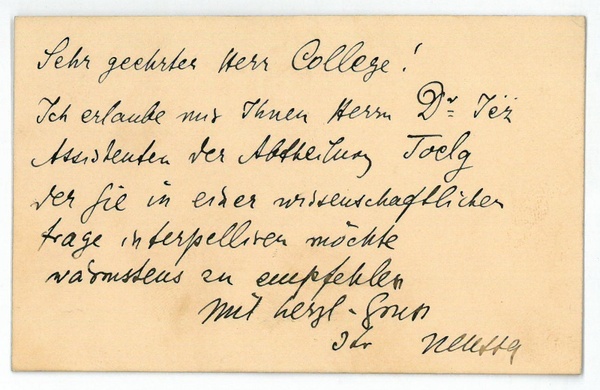 Sehr geehrter Herr College!
Ich erlaube mir Ihnen Herrn Dr Jéž
Assistenten der Abtheilung Toelg
der Sie in einer wissenschaftlichen
frage interpelliren möchte
wärmstens zu empfehlen
Mit herzl. Gruss
Ihr Neusser